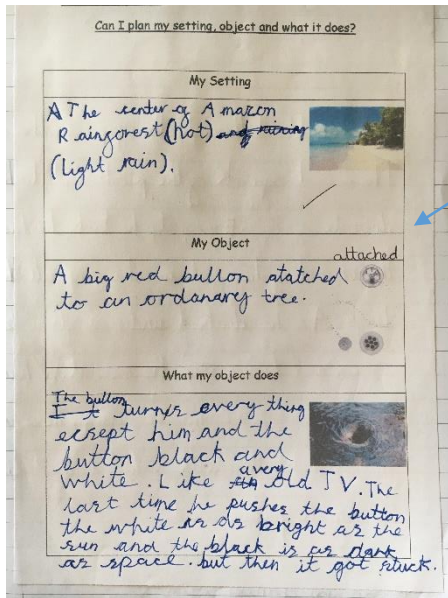 Can I plan my setting, object and what it does?
My Setting
A The center of Amazon
Rainforest (hot) and raining
(light rain).
My Object
attached
A big red button atatched
to an ordanarey tree.
What my object does
The button
I t Turns every thing
ecsept him and the
button black and
white. Like a very old TV. The
last time he pushes the button
the white is as bright as the
sun and the black is as dark
as space. but then it got stuck.